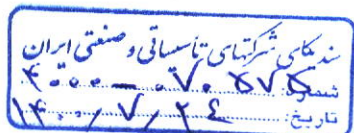 سندیکای شرکتهای تأسیساتی و صنعتی ایران
شماره: ۴۰۰۰-۰۷۰۵۷۵
تاریخ: ۱۴۰۰/۷/۲۴